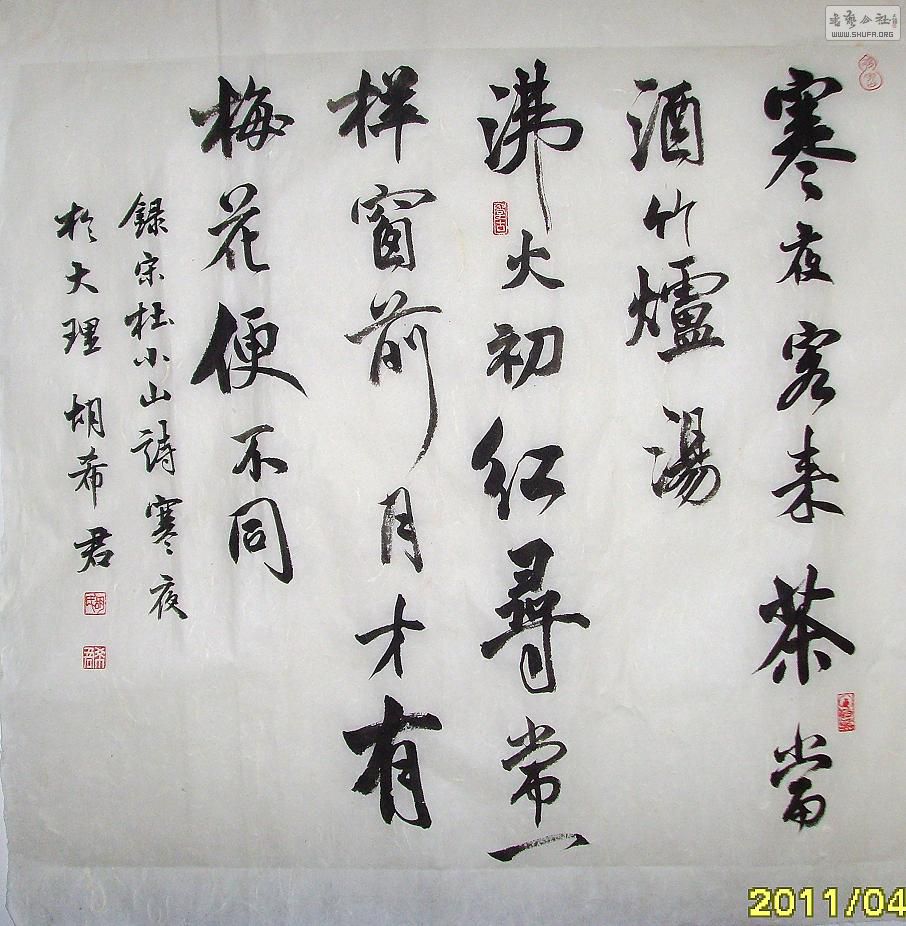 寒夜客来茶當
酒竹爐湯
沸火初红尋常一
样窗前月才有
梅花便不同
録宋杜小山詩寒夜
於大理胡希君
书艺公社
WWW.SHUFA.ORG
2011/04